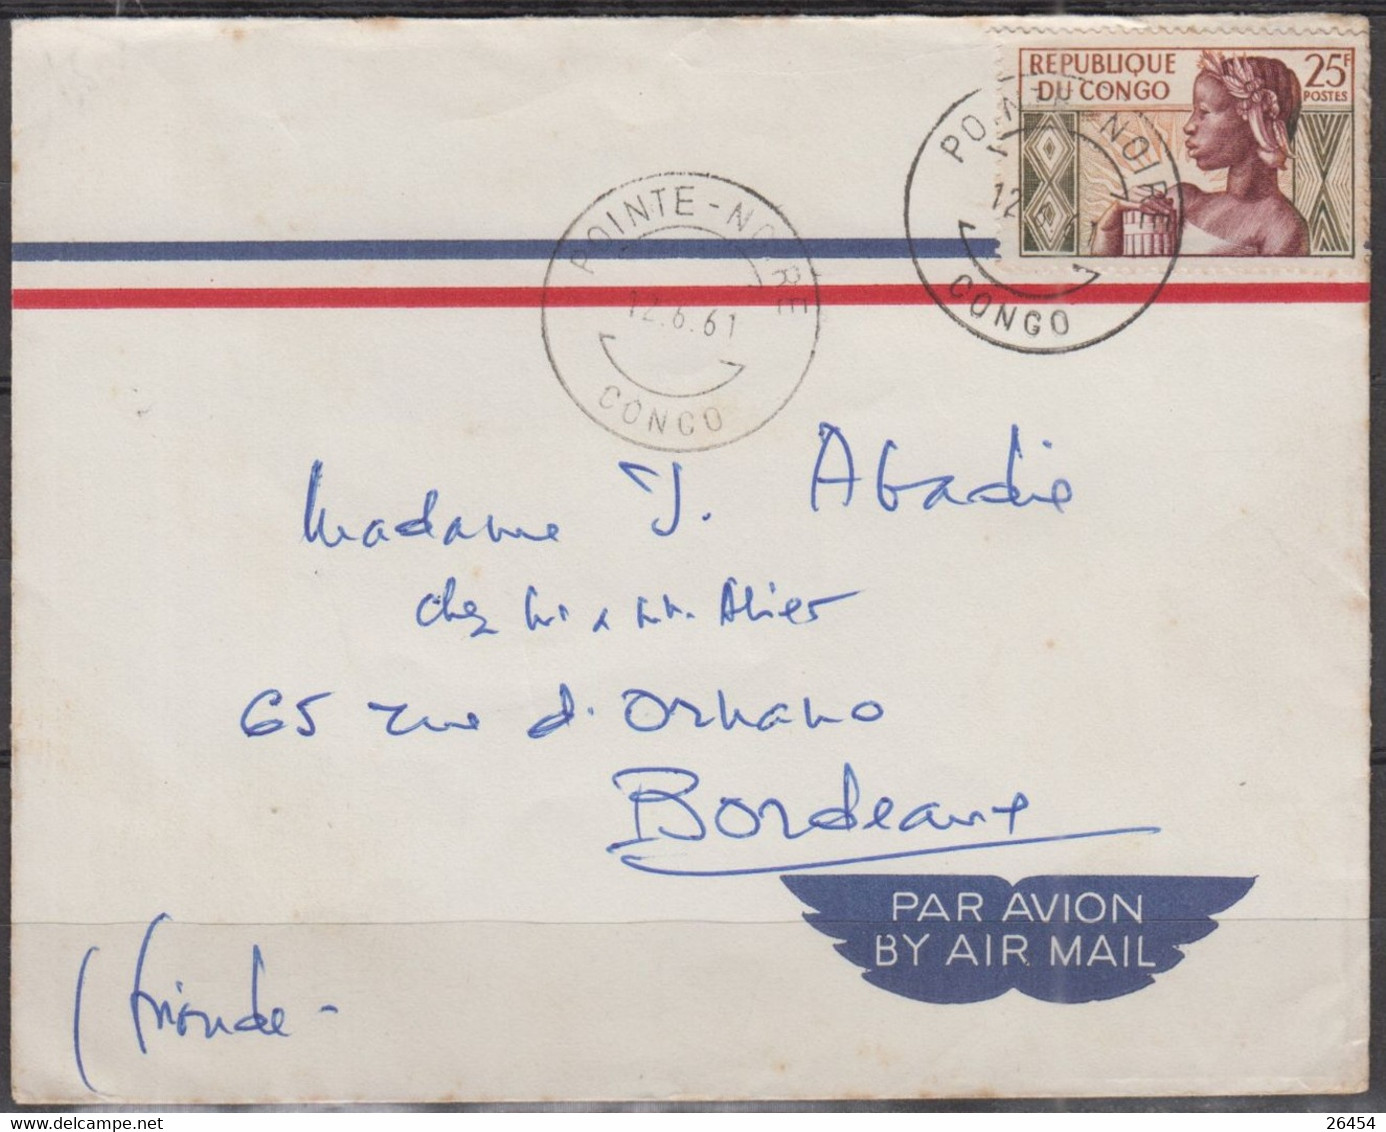 REPUBLIQUE
DU CONGO
25F
POSTES
POINTE-NOIRE
12.6.61
CONGO
POINTE-NOIRE
12.6.61
CONGO
Madame J. Abadie
chez
65 rue d'Ornano
Bordeaux
PAR AVION
BY AIR MAIL
(Gironde -
26454